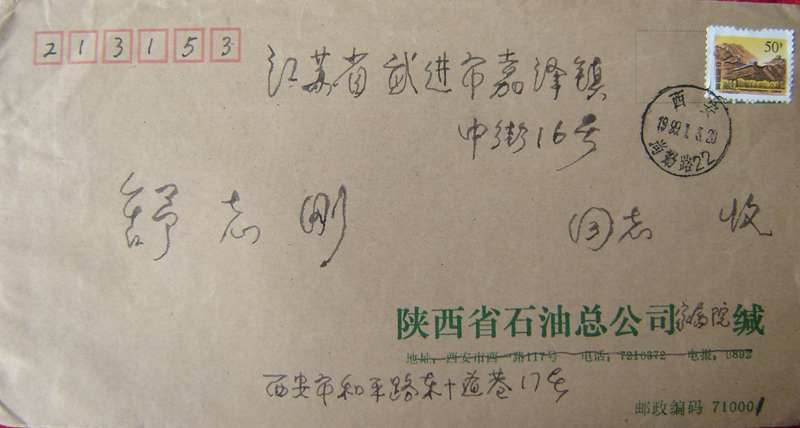 213153
50分
江苏省武进市嘉泽镇
中街16号
西安
1999.1.5.20
路22
舒志刚 同志 收
陕西省石油总公司家属院缄
地址：西安市西一路117号 电话：7210372 电报：0892
西安市和平路东十道巷17号
邮政编码 710001